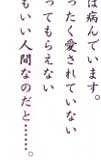 は病んでいます。
ったく愛されていない
ってもらえない
もいい人間なのだと……。